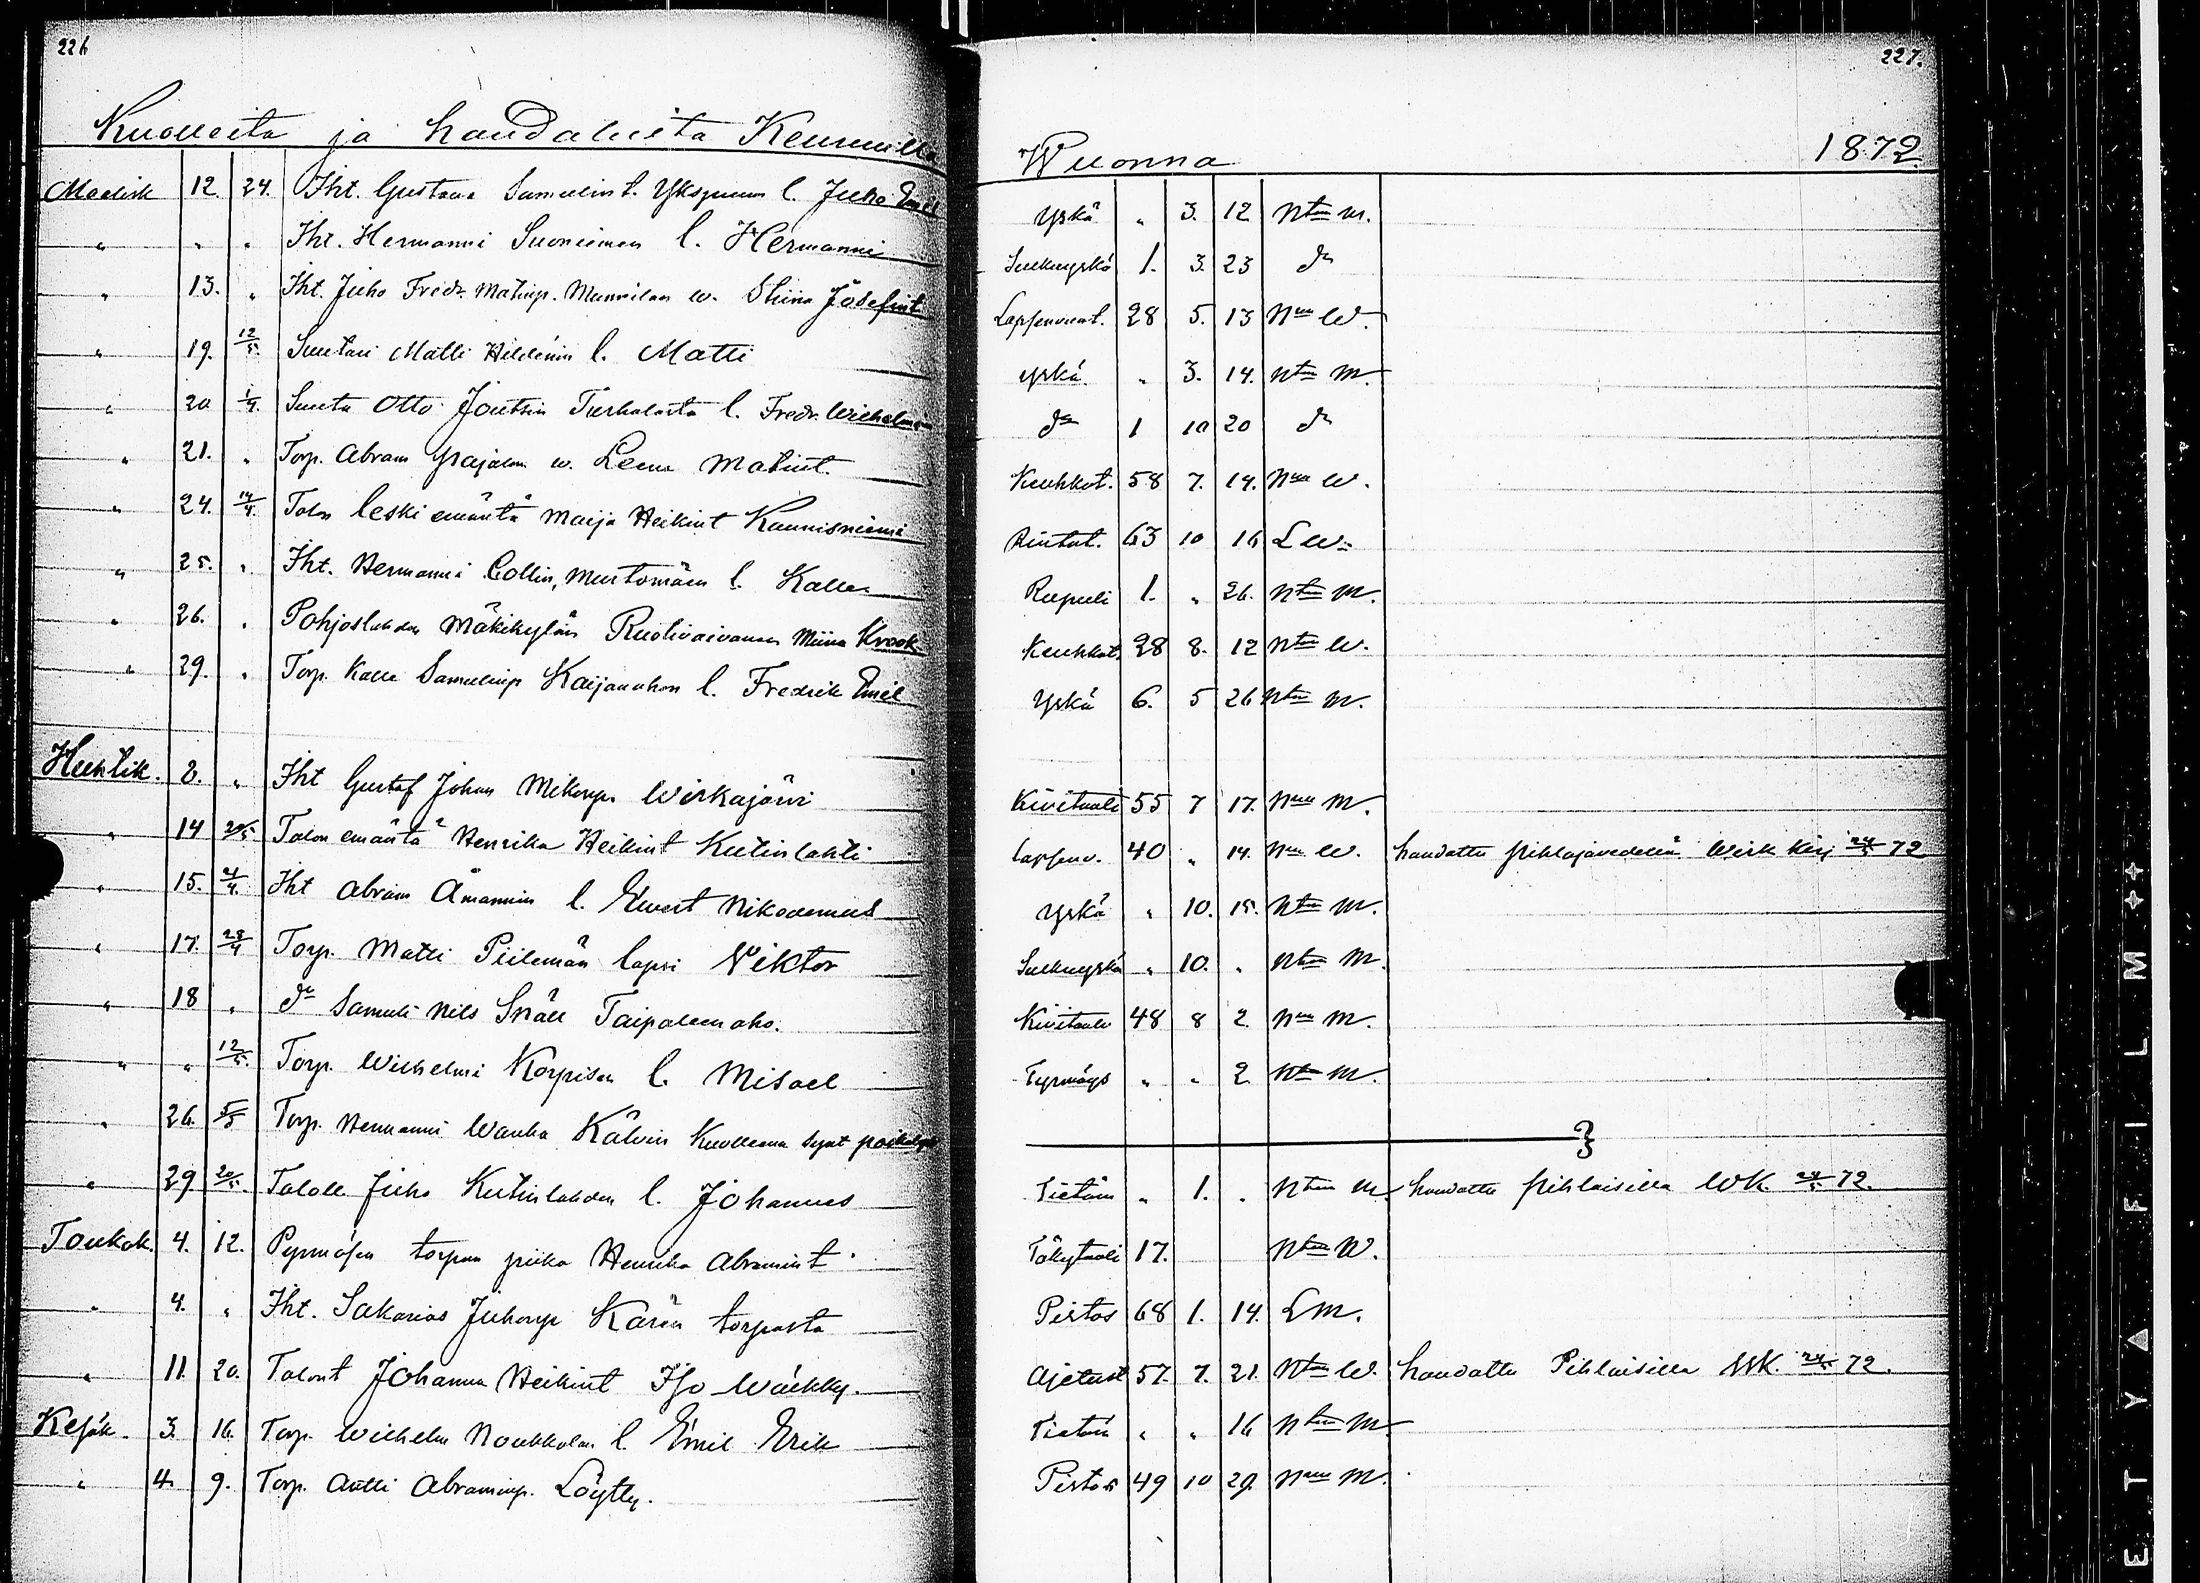 226
Kuolleita ja haudatuita Keuruulla
Maalisk 12. 24. Iht. Gustava Samulint. Ykspuun l. Juho Emil
" " " Iht. Hermanni Suoniemen l. Hermanni
" 13. " Iht. Juho Fredr. Matinp. Mannilan w. Stiina Josefint
" 19. 12/5. Suutari Matti Hildenin l. Matti
" 20 1/4. Suuta Otto Joutsin Turhalasta l. Fredr. Wilhelm
" 21. " Torp. Abram Ypäjalan w. Leena Matint.
" 24. 14/4. Talon leski emäntä Maija Heikint Kaunisniemi
" 25. " Iht. Hermanni Collin, Mustomäen l. Kalle
" 26. " Pohjoslahden Mäkikylän Ruotivaivanen Miina Krook
" 29. " Torp. Kalle Samulinp Kaijanahon l. Fredrik Emil
Huhtik. 2. " Iht Gustaf Johan Mikonp. Wirkajärvi
" 14 20/5. Talon emäntä Henrika Heikint Kutinlahti
" 15. 21/4. Iht Abram Åmannin l. Ewert Nikodemus
" 17. 28/4 Torp. Matti Piilemän lapsi Viktor
" 18 " do Samuli Nils Snäll Taipaleenaho.
" " 12/5. Torp. Wilhelmi Korpisen l. Misael
" 26. 5/5 Torp. Hermanni Wanha Kälvin Kuolleena synt poikalapsi
" 29 20/5. Taloll Juho Kutinlahden l. Johannes
Toukok. 4. 12. torpan piika Henrika Abramint
" 4. " Iht. Sakarias Juhonp Kärän torpasta
" 11. 20. Talont Johanna Heikint Iso Wäkky.
Kesäk. 3. 16. Torp. Wilhelm Noukkolan l. Emil Erik
" 4. 9. Torp. Antti Abraminp. Löytty.
227.
Wuonna 1872
Yskä " 3. 12 Ntön m.
Tuukuyskä 1. 3. 23 do
Lapsenvuot. 28 5. 13 Nnu W.
yskä " 3. 14. Ntön M.
do 1 10 20 do
Keuhkot. 58 7. 14. Nnu W.
Rintat. 63 10 16 L W.
Rupuli 1. " 26. Ntön M.
Keuhkot. 28 8. 12 Ntön W.
Yskä 6. 5 26 Ntön M.
Kivitauti 55 7 17. Nnu M.
Lapsenv. 40 " 14. Nnu W. haudattu Pihlajavedellä Wirk kirj 24/5 72
Yskä " 10. 15. Ntön M.
Tuukuyskä " 10. " Ntön M.
Kivitauti 48 8 2. Nnu M.
Tyrmäys " " 2 Ntön M.
Tietön " 1. " Ntön M. haudattu Pihlaisilla WK. 24/5 72.
Tökytauti 17. Ntön W.
Pistos 68 1. 14. L M.
Ajetust 57. 7. 21. Ntön W. haudattu Pihlaisilla WK. 24/5 72.
Tietön " " 16 Ntön M
Pistos 49 10 29. Nnu M.
ETYÄFILM